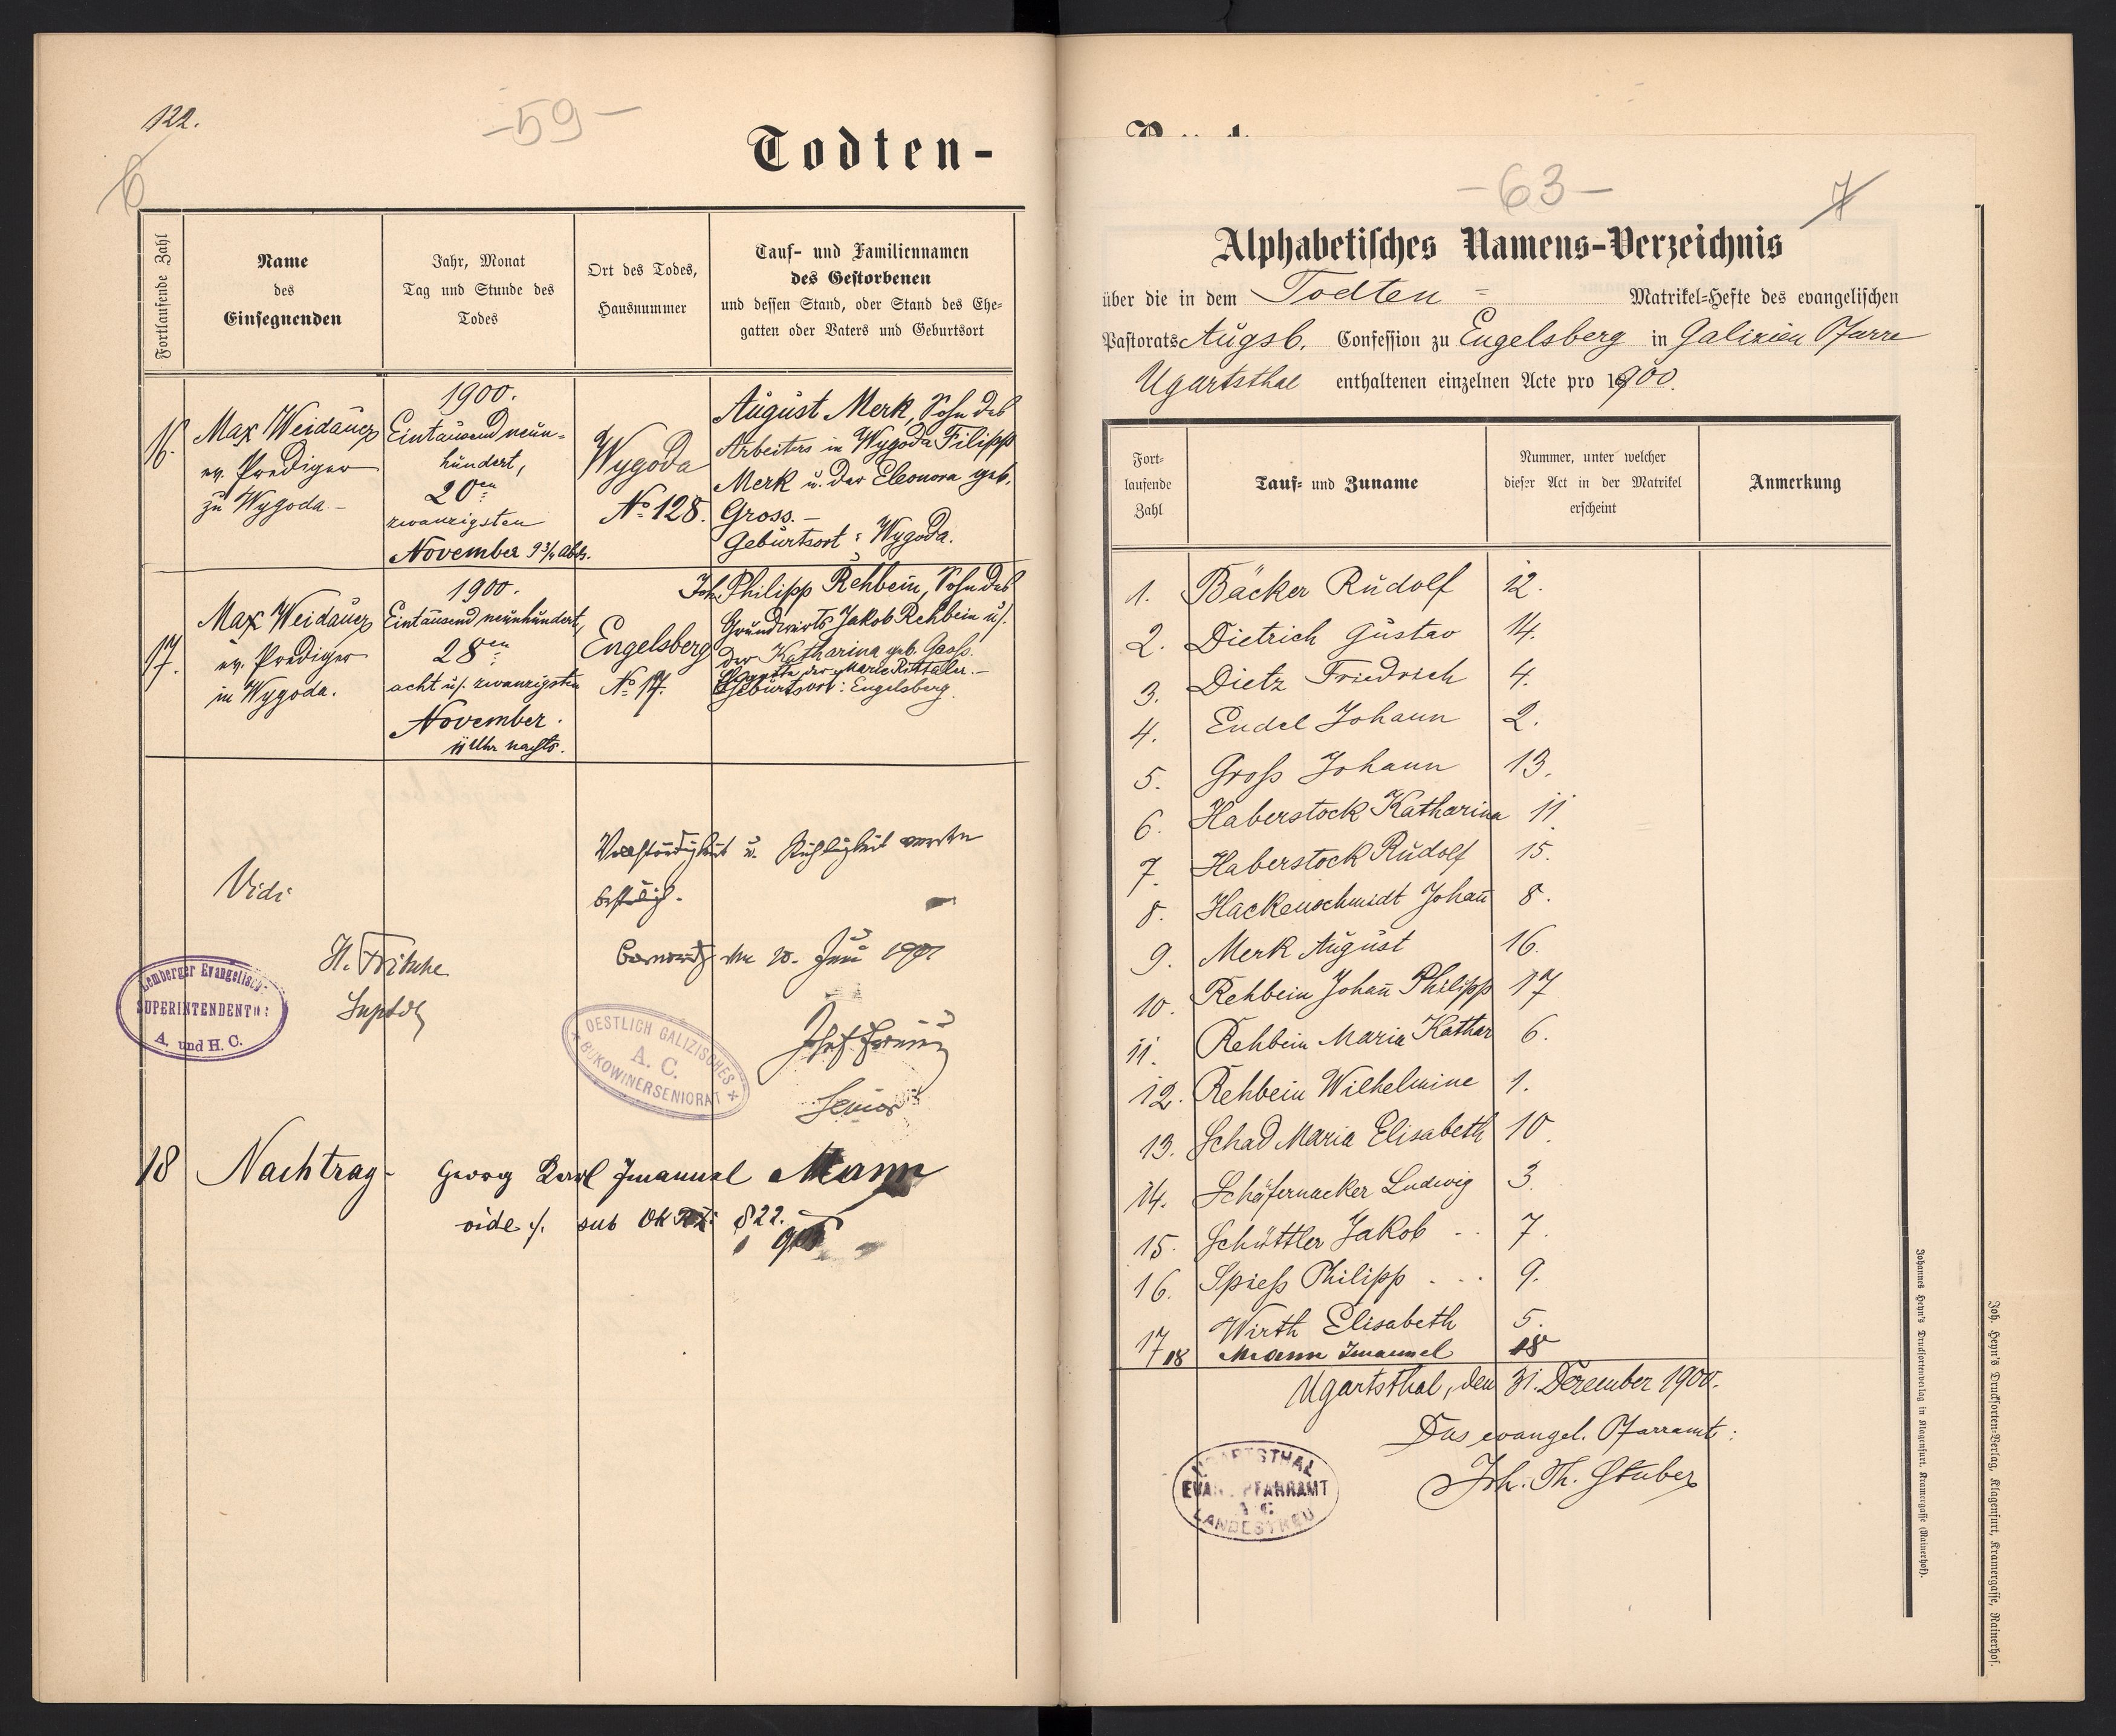 122.
-59-
6
Todten-
Fortlaufende Zahl
Name
des
Einsegnenden
Jahr, Monat
Tag und Stunde des
Todes
Ort des Todes,
Hausnummer
Tauf- und Familiennamen
des Gestorbenen
und dessen Stand, oder Stand des Ehe-
gatten oder Vaters und Geburtsort
16.
Max Weidauer
ev. Prediger
zu Wygoda.-
1900.
Eintausend neun-
hundert,
20en
zwanzigsten
November 9 3/4 Abds.
Wygoda
No 128.
August Merk, Sohn des
Arbeiters in Wygoda Filipp
Merk u. der Eleonora geb.
Gross.-
Geburtsort: Wygoda.
17.
Max Weidauer
ev. Prediger
in Wygoda.
1900.
Eintausend neunhundert,
28en
acht u/. zwanzigsten
November.
11 Uhr nachts.
Engelsberg
No 17.
Joh. Philipp Rehbein, Sohn des
Grundwirts Jakob Rehbein u/.
der Katharina geb. Gass.
Gatte der Marie Rittaler.-
Geburtsort: Engelsberg.
Vollständigkeit u. Richtigkeit werden
bestätigt.
Vidi
H. Fritsche
Suptdt
Lemberger Evangelische
SUPERINTENDENTUR
A. und H. C.
den 20. Juni 1901
OESTLICH GALIZISCHES
A. C.
BUKOWINERSENIORAT
Senior
18
Nachtrag-
Georg Karl Imanuel Mann
vide /. sub 822.
Alphabetisches Namens-Verzeichnis
-63-
7
über die in dem Todten = Matrikel-Hefte des evangelischen
Pastorats Augsb. Confession zu Engelsberg in Galizien Pfarre
Ugartsthal enthaltenen einzelnen Acte pro 1900.
Fort-
laufende
Zahl
Tauf- und Zuname
Nummer, unter welcher
dieser Act in der Matrikel
erscheint
Anmerkung
1. Bäcker Rudolf 12.
2. Dietrich Gustav 14.
3. Dietz Friedrich 4.
4. Endel Johann 2.
5. Groß Johann 13.
6. Haberstock Katharina 11
7. Haberstock Rudolf 15.
8. Hackenschmidt Johan̄ 8.
9. Merk August 16.
10. Rehbein Johan̄ Philipp 17
11. Rehbein Maria Kathar 6.
12. Rehbein Wilhelmine 1.
13. Schad Maria Elisabeth 10.
14. Schäfernacker Ludwig 3.
15. Schüttler Jakob .. 7.
16. Spieß Philipp ... 9.
17 Wirth Elisabeth 5.
18 Mann Imanuel 18
Ugartsthal, den 31. Dezember 1900.
Das evangel. Pfarramt:
Joh. Th. Stuber
UGARTSTHAL
EVANG. PFARRAMT
A. C.
LANDESTREU
Johannes Heyn's Drucksortenverlag in Klagenfurt, Kramergasse (Rainerhof).
Joh. Heyn's Drucksorten-Verlag, Klagenfurt, Kramergasse, Rainerhof.